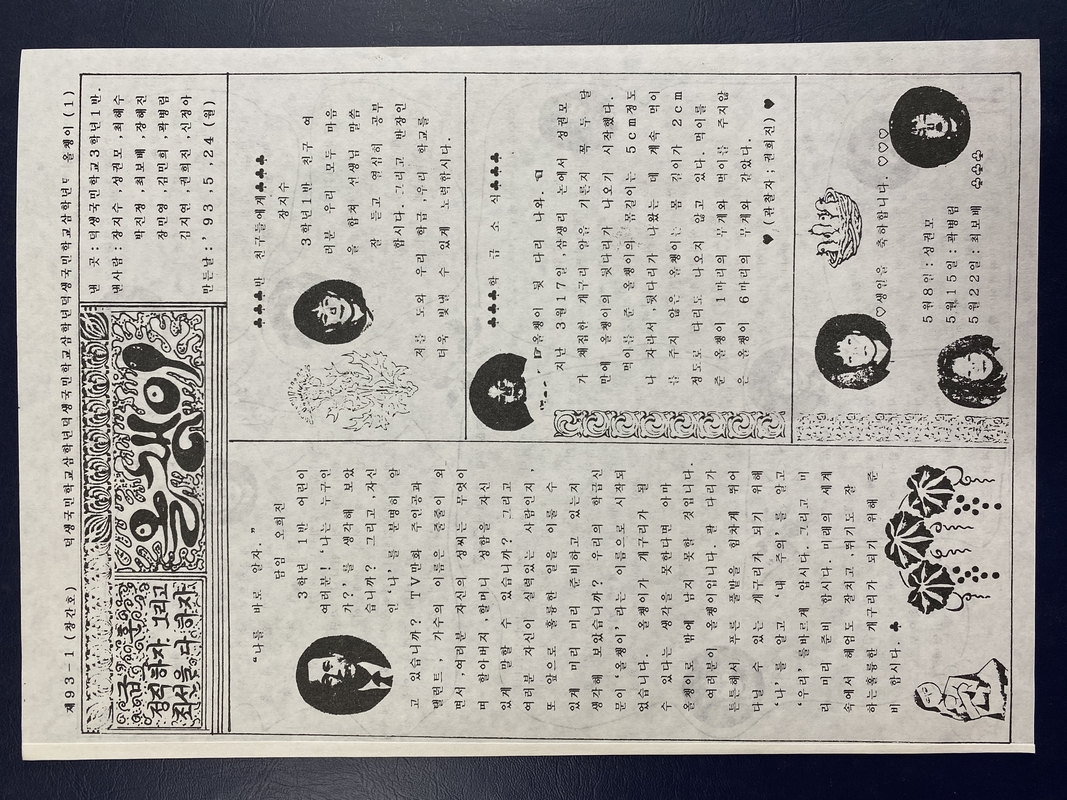 제93-1 (창간호) 덕생국민학교삼학년덕생국민학교삼학년덕생국민학교삼학년 올챙이 (1)
정직하자 그리고
최선을 다 하자
올챙이
낸 곳 : 덕생국민학교3학년1반.
낸사람 : 장지수 ,성권모 ,최혜수
박진정 ,최보배 ,장혜진
장민영 ,김민희 ,곽병림
김지연 ,권희진 ,신정아
만든날 : ' 93 , 5 , 24 (월)
"나를 바로 알자."
담임 오희진
3학년 1반 어린이
여러분! '나는 누구인
가?' 를 생각해 보았
습니까? 그리고 ,자신
인 '나' 를 분명히 알
고 있습니까? TV만화 주인공과
탤런트 , 가수의 이름은 줄줄이 외
면서 ,여러분 자신의 성씨는 무엇이
며 할아버지 ,할머니 성함을 자신
있게 말할 수 있습니까? 그리고
여러분 자신이 실력있는 사람인지 ,
또 앞으로 훌륭한 일을 이룰 수
있게 미리 미리 준비하고 있는지
생각해 보았습니까? 우리의 학급신
문이 '올챙이' 라는 이름으로 시작되
었습니다. 올챙이가 개구리가 될
수 있다는 생각을 못한다면 아마
올챙이로 밖에 남지 못할 것입니다.
여러분이 올챙이입니다. 팔 다리가
튼튼해서 푸른 풀밭을 힘차게 뛰어
다닐 수 있는 개구리가 되기 위해
'나' 를 알고 '내 주위' 를 알고
'우리' 를바르게 압시다. 그리고 미
리 미리 준비 합시다. 미래의 세계
속에서 헤엄도 잘치고 ,뛰기도 잘
하는훌륭한 개구리가 되기 위해 준
비 합시다. ♣
♣♣♣♣반 친구들에게♣♣♣♣
장지수
3학년1반 친구 여
러분 우리 모두 마음
을 합쳐 선생님 말씀
잘 듣고 열심히 공부
합시다. 그리고 반장인
저를 도와 우리 학급 ,우리 학교를
더욱 빛낼 수 있게 노력합시다.
♣♣♣♣학 급 소 식♣♣♣♣
☞올챙이 뒷 다리 나와. ☜
지난 3월17일 ,삼생리 논에서 성권모
가 채집한 개구리 알을 기른지 꼭 두 달
만에 올챙이의 뒷다리가 나오기 시작했다.
먹이를 준 올챙이의 몸길이는 5cm정도
나 자라서 ,뒷다리가 나왔는 데 계속 먹이
를 주지 않은 올챙이는 몸 길이가 2cm
정도로 다리도 나오지 않고 있다. 먹이를
준 올챙이 1마리의 무게와 먹이를 주지않
은 올챙이 6마리의 무게와 같았다.
♥ (관찰자 ; 권희진) ♥
♡생일을 축하합니다. ♡♡♡
5월8일 : 성권모
5월15일 : 곽병림
5월22일 : 최보배
♧♧♧